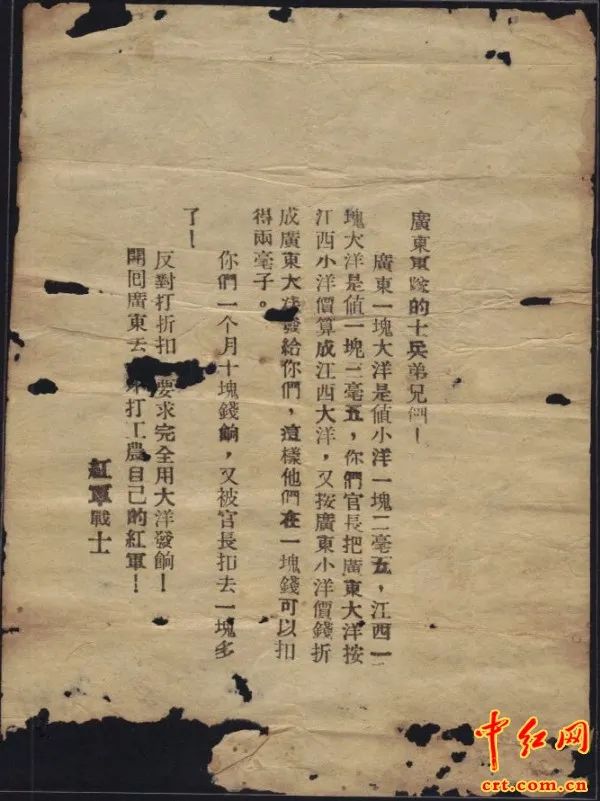 廣東軍隊的士兵弟兄們！
廣東一塊大洋是值小洋一塊二毫五，江西一
塊大洋是値一塊三毫五，你們官長把廣東大洋按
江西小洋價算成江西大洋，又按廣東小洋價錢折
成廣東大洋發給你們，這樣他們在一塊錢可以扣
得兩毫子。
你們一个月十塊錢餉，又被官長扣去一塊多
了！
反對打折扣 要求完全用大洋發餉！
開回廣東去 打工農自己的紅軍！
紅軍戰士
中红网
crt.com.cn